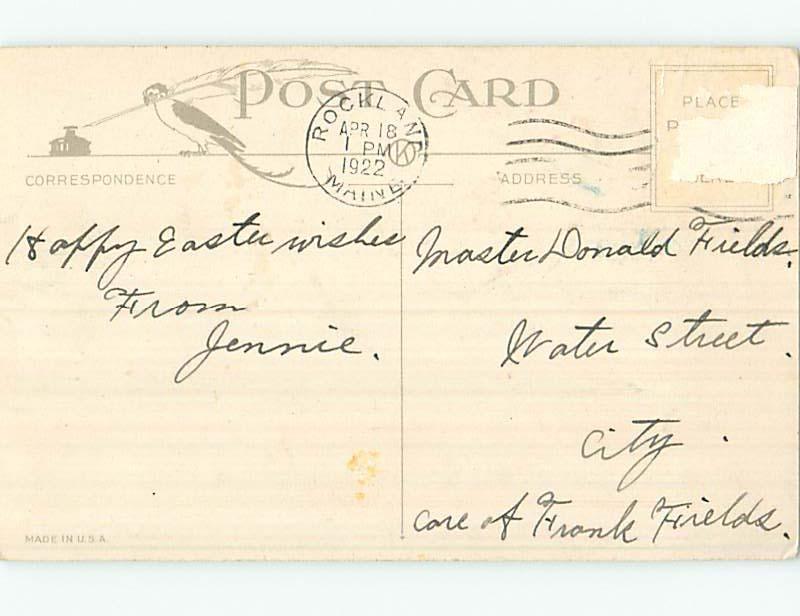 POST CARD
ROCKLAND
APR 18
1 PM
1922
MAINE
K
PLACE
CORRESPONDENCE
ADDRESS
Happy Easter wishes
From
Jennie.
Master Donald Fields.
Water Street.
City.
care of Frank Fields.
MADE IN U.S.A.